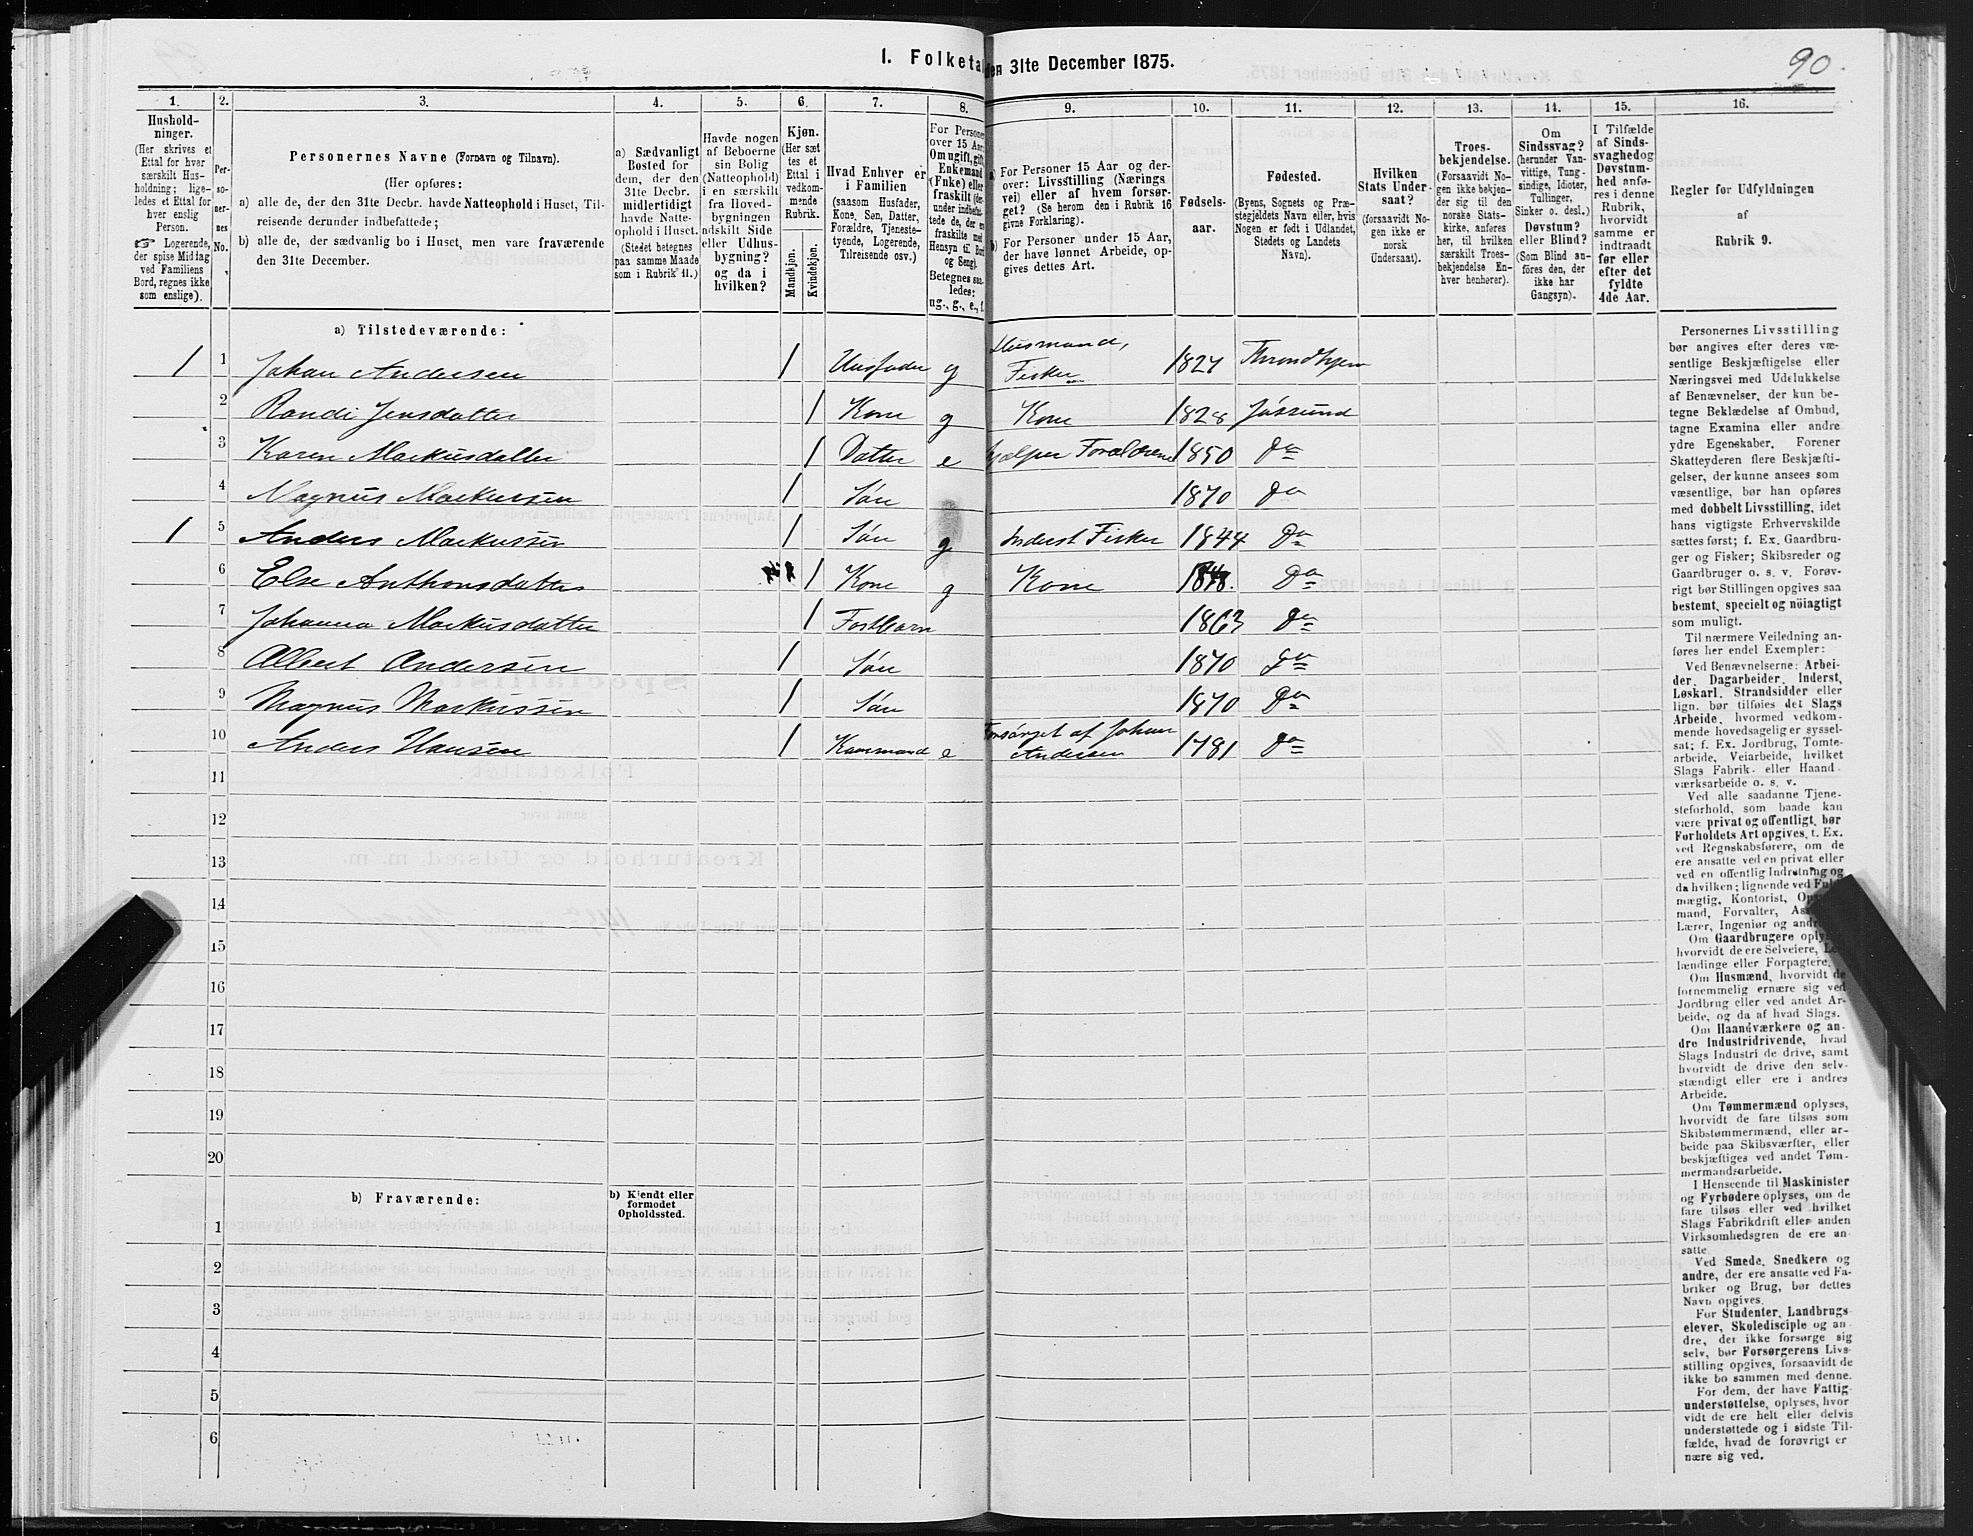 1. Folketal den 31te December 1875.
90.
1.
2.
3.
4.
5.
6.
7.
8.
9.
10.
11.
12.
13.
14.
15.
16.
Hushold-
ninger.
(Her skrives et
Ettal for hver
særskilt Hus-
holdning; lige-
ledes et Ettal for
hver enslig
Person.
☞ Logerende,
der spise Middag
ved Familiens
Bord, regnes ikke
som enslige).
Per-
so-
ner-
nes
No.
Personernes Navne (Fornavn og Tilnavn).
(Her opføres:
a) alle de, der den 31te Decbr. havde Natteophold i Huset, Til-
reisende derunder indbefattede;
b) alle de, der sædvanlig bo i Huset, men vare fraværende
den 31te December.
a) Sædvanligt
Bosted for
dem, der den
31te Decbr.
midlertidigt
havde Natte-
ophold i Huset.
(Stedet betegnes
paa samme Maade
som i Rubrik 11.)
Havde nogen
af Beboerne
sin Bolig
(Natteophold)
i en særskilt
fra Hoved-
bygningen
adskilt Side
eller Udhus-
bygning?
og da i
hvilken?
Kjøn.
(Her sæt
tes et
Ettal i
vedkom-
mende
Rubrik.
Mandkjøn.
Kvindekjøn.
Hvad Enhver er
i Familien
(saasom Husfader,
Kone, Søn, Datter,
Forældre, Tjeneste-
tyende, Logerende,
Tilreisende osv.)
For Personer
over 15 Aar:
Om ugift, gift,
Enkemand
(Enke) eller
fraskilt (der-
under indbefat-
tede de, der ere
fraskilte med
Hensyn til Bord
og Seng).
Betegnes saa-
ledes:
ug., g., e., f.
a) For Personer 15 Aar og der-
over: Livsstilling (Nærings
vei) eller af hvem forsør-
get? (Se herom den i Rubrik 16
givne Forklaring).
b) For Personer under 15 Aar,
der have lønnet Arbeide, op-
gives dettes Art.
Fødsels-
aar.
Fødested.
(Byens, Sognets og Præ-
stegjeldets Navn eller, hvis
Nogen er født i Udlandet,
Stedets og Landets
Navn).
Hvilken
Stats Under-
saat?
(forsaavidt No-
gen ikke er
norsk
Undersaat).
Troes-
bekjendelse.
(Forsaavidt No-
gen ikke bekjen-
der sig til den
norske Stats-
kirke, anføres
her, til hvilken
særskilt Troes-
bekjendelse En-
hver henhører).
Om
Sindssvag?
(herunder Van-
vittige, Tung-
sindige, Idioter,
Tullinger,
Sinker o. desl.)
Døvstum?
eller Blind?
(Som Blind an-
føres den, der
ikke har
Gangsyn).
I Tilfælde
af Sinds-
svaghed og
Døvstum-
hed anfø-
res i denne
Rubrik,
hvorvidt
samme er
indtraadt
før eller
efter det
fyldte
4de Aar.
Regler for Udfyldningen
af
Rubrik 9.
a) Tilstedeværende:
1 1 Johan Andersen 1 Husfader g Husmand, Fisker 1827 Throndhjem
2 Randi Jensdatter 1 Kone g Kone 1828 Jøssund
3 Karen Markusdatter 1 Datter e hjælper Forældrene 1850 Do
4 Magnus Markussen 1 Søn 1870 Do
1 5 Anders Markussen 1 Søn g Inderst Fisker 1844 Do
6 Else Anthonsdatter 1 Kone g Kone Do
7 Johanna Markusdatter 1 Fostbarn 1863 Do
8 Albert Andersen 1 Søn 1870 Do
9 Magnus Markussen 1 Søn 1870 Do
10 Anders Hansen 1 e Forsørget af Johan Andersen 1781 Do
11
12
13
14
15
16
17
18
19
20
b) Fraværende:
b) Kjendt eller
formodet
Opholdssted.
1
2
3
4
5
6
Personernes Livsstilling
bør angives efter deres væ-
sentlige Beskjæftigelse eller
Næringsvei med Udelukkelse
af Benævnelser, der kun be-
tegne Beklædelse af Ombud,
tagne Examina eller andre
ydre Egenskaber. Forener
Skatteyderen flere Beskjæfti-
gelser, der kunne ansees som
væsentlige, bør han opføres
med dobbelt Livsstilling, idet
hans vigtigste Erhvervskilde
sættes først; f. Ex. Gaardbru-
ger og Fisker; Skibsreder og
Gaardbruger o. s. v. Forøv-
rigt bør Stillingen opgives saa
bestemt, specielt og nöiagtigt
som muligt.
Til nærmere Veiledning an-
føres her endel Exempler:
Ved Benævnelserne: Arbei-
der, Dagarbeider, Inderst,
Løskarl, Strandsidder eller
lign. bør tilføies det Slags
Arbeide, hvormed vedkom-
mende hovedsagelig er syssel-
sat; f. Ex. Jordbrug, Tomte-
arbeide, Veiarbeide, hvilket
Slags Fabrik- eller Haand-
værksarbeide o. s. v.
Ved alle saadanne Tjene-
steforhold, som baade kan
være privat og offentligt, bør
Forholdets Art opgives, t. Ex.
ved Regnskabsførere, om de
ere ansatte ved en privat eller
ved en offentlig Indretning og
da hvilken; lignende ved
mægtig, Kontorist,
mand, Forvalter,
Lærer, Ingeniør og
Om Gaardbrugere
hvorvidt de ere Selveiere,
lændinge eller Forpagtere.
Om Husmænd, hvorvidt de
fornemmelig ernære sig ved
Jordbrug eller ved andet Ar-
beide, og da af hvad Slags.
Om Haandværkere og an-
dre Industridrivende, hvad
Slags Industri de drive, samt
hvorvidt de drive den selv-
stændigt eller ere i andres
Arbeide.
Om Tømmermænd oplyses,
hvorvidt de fare tilsøs som
Skibstømmermænd, eller ar-
beide paa Skibsværfter, eller
beskjæftiges ved andet Tøm-
mermandsarbeide.
I Henseende til Maskinister
og Fyrbødere oplyses, om de
fare tilsøs eller ved hvilket
Slags Fabrikdrift eller anden
Virksomhedsgren de ere an-
satte.
Ved Smede, Snedkere og
andre, der ere ansatte ved Fa-
briker og Brug, bør dettes
Navn opgives.
For Studenter, Landbrugs-
elever, Skoledisciple og an-
dre, der ikke forsørge sig
selv, bør Forsørgerens Livs-
stilling opgives, forsaavidt de
ikke bo sammen med denne.
For dem, der have Fattig-
understøttelse, oplyses, hvor
vidt de ere helt eller delvis
understøttede og i sidste Til-
fælde, hvad de forøvrigt er
nære sig ved.